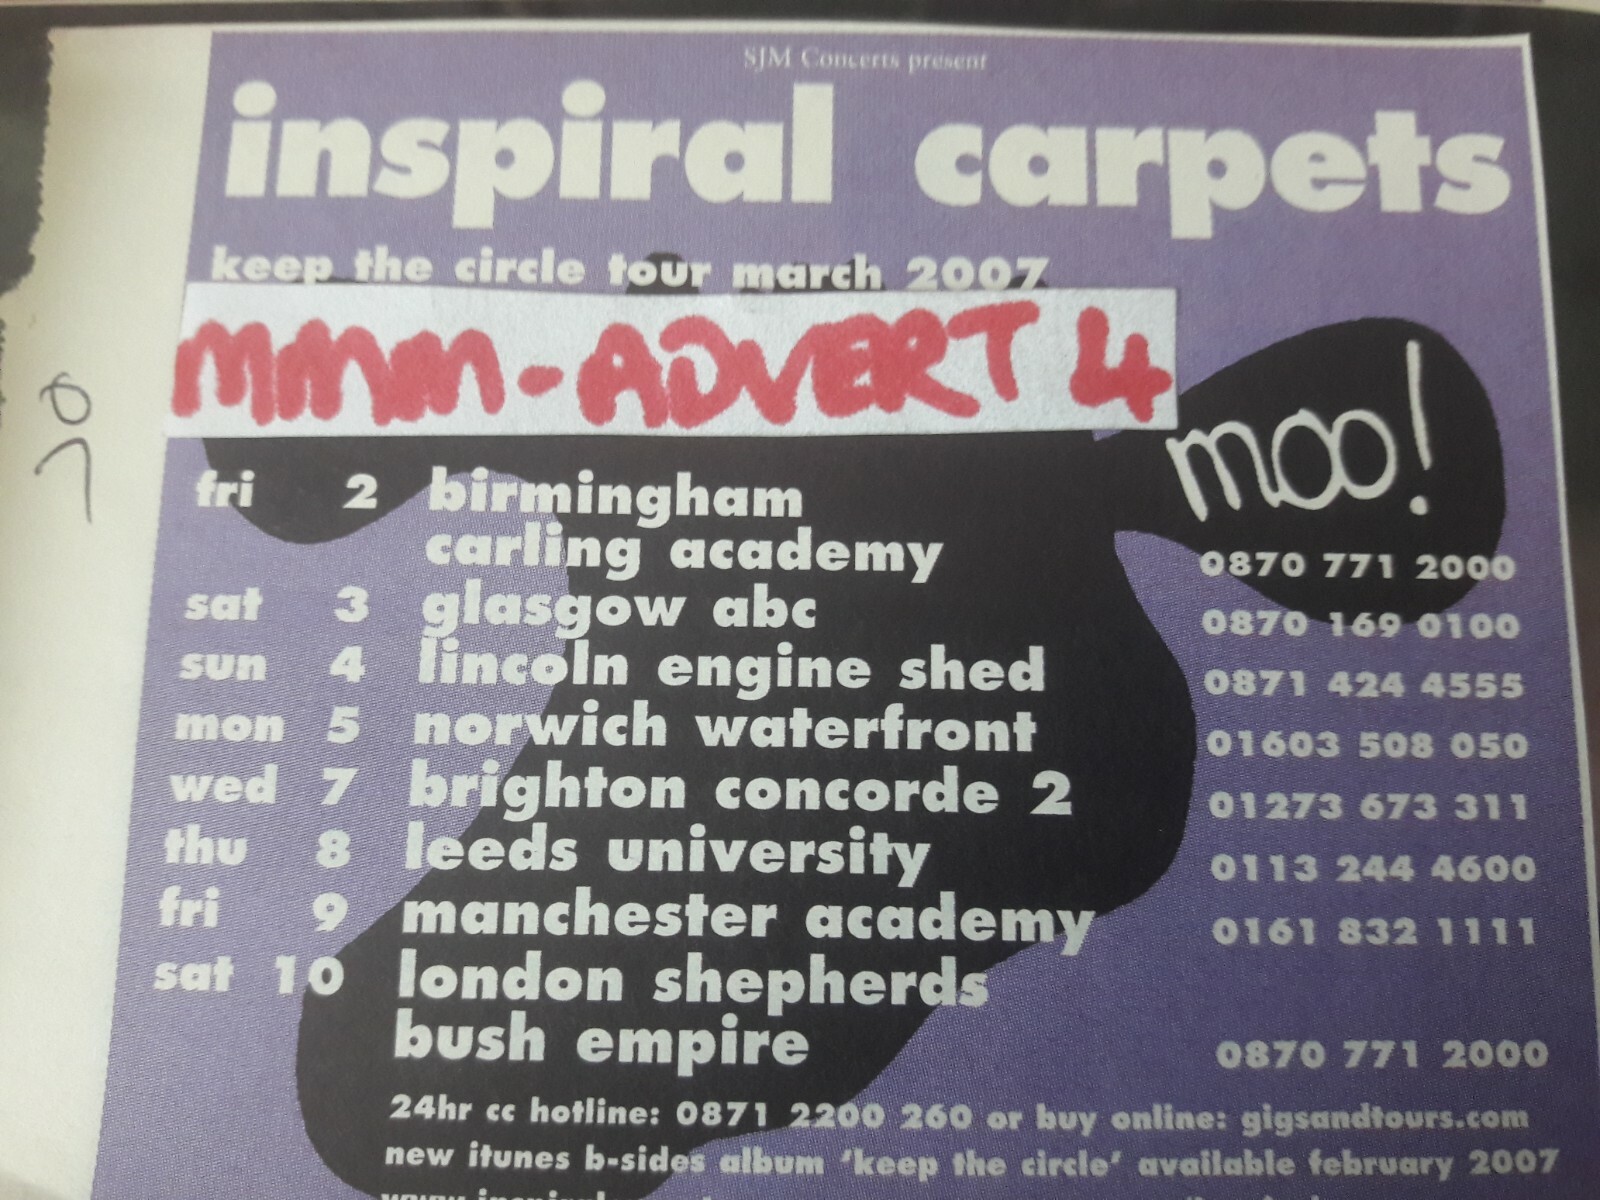 SJM Concerts present
inspiral carpets
keep the circle tour march 2007
MMM-ADVERT 4
moo!
fri 2 birmingham
carling academy 0870 771 2000
sat 3 glasgow abc 0870 169 0100
sun 4 lincoln engine shed 0871 424 4555
mon 5 norwich waterfront 01603 508 050
wed 7 brighton concorde 2 01273 673 311
thu 8 leeds university 0113 244 4600
fri 9 manchester academy 0161 832 1111
sat 10 london shepherds
bush empire 0870 771 2000
24hr cc hotline: 0871 2200 260 or buy online: gigsandtours.com
new itunes b-sides album 'keep the circle' available february 2007